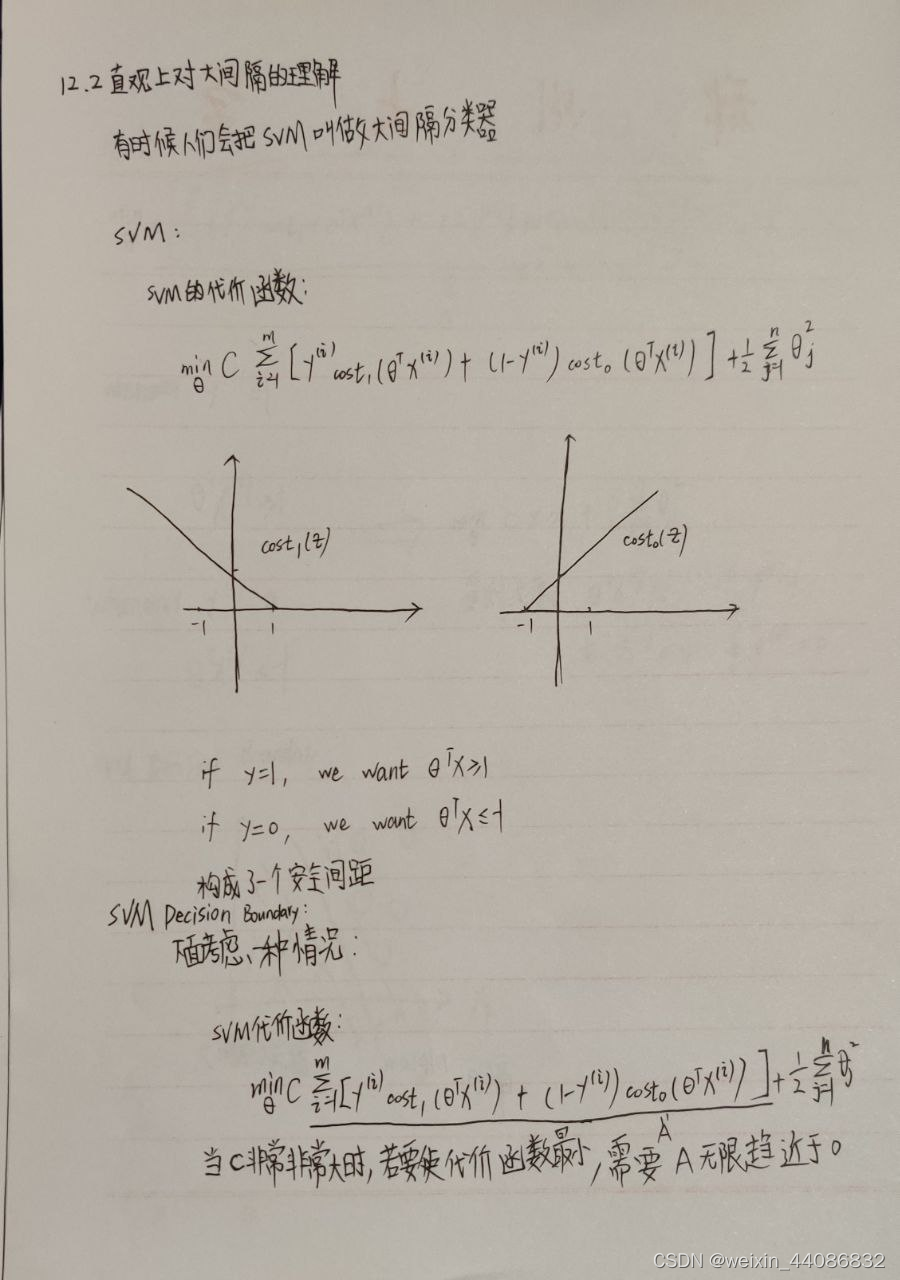 12.2 直观上对大间隔的理解
有时候人们会把 SVM 叫做大间隔分类器
SVM:
SVM的代价函数:
min_θ C Σ_{i=1}^{m} [y^{(i)} cost₁(θᵀx^{(i)}) + (1-y^{(i)}) cost₀(θᵀx^{(i)})] + 1/2 Σ_{j=1}^{n} θ_j^2
cost₁(z)
cost₀(z)
-1 1
-1 1
if y=1, we want θᵀx≥1
if y=0, we want θᵀx≤-1
构成了一个安全间距
SVM Decision Boundary:
下面考虑一种情况:
SVM代价函数:
min_θ C Σ_{i=1}^{m} [y^{(i)} cost₁(θᵀx^{(i)}) + (1-y^{(i)}) cost₀(θᵀx^{(i)})] + 1/2 Σ_{j=1}^{n} θ_j^2
A
当C非常非常大时,若要使代价函数最小,需要A无限趋近于0
CSDN @weixin_44086832